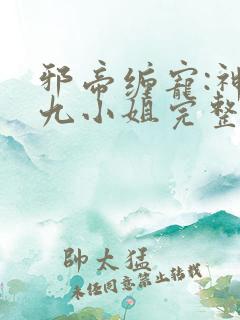 邪帝缠宠:神
九小姐完整
帥太猛
未经同意禁止转载